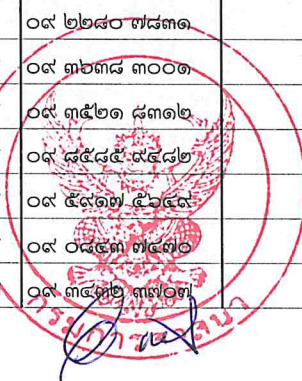 ๐๙ ๒๒๘๐ ๗๘๓๑
๐๙ ๓๖๓๘ ๓๐๐๑
๐๙ ๓๕๒๑ ๘๓๑๒
๐๙ ๘๕๘๕ ๙๕๘๒
๐๙ ๕๙๑๗ ๕๖๔๙
๐๙ ๐๘๔๓ ๗๔๗๐
๐๙ ๓๔๓๒ ๓๗๐๗